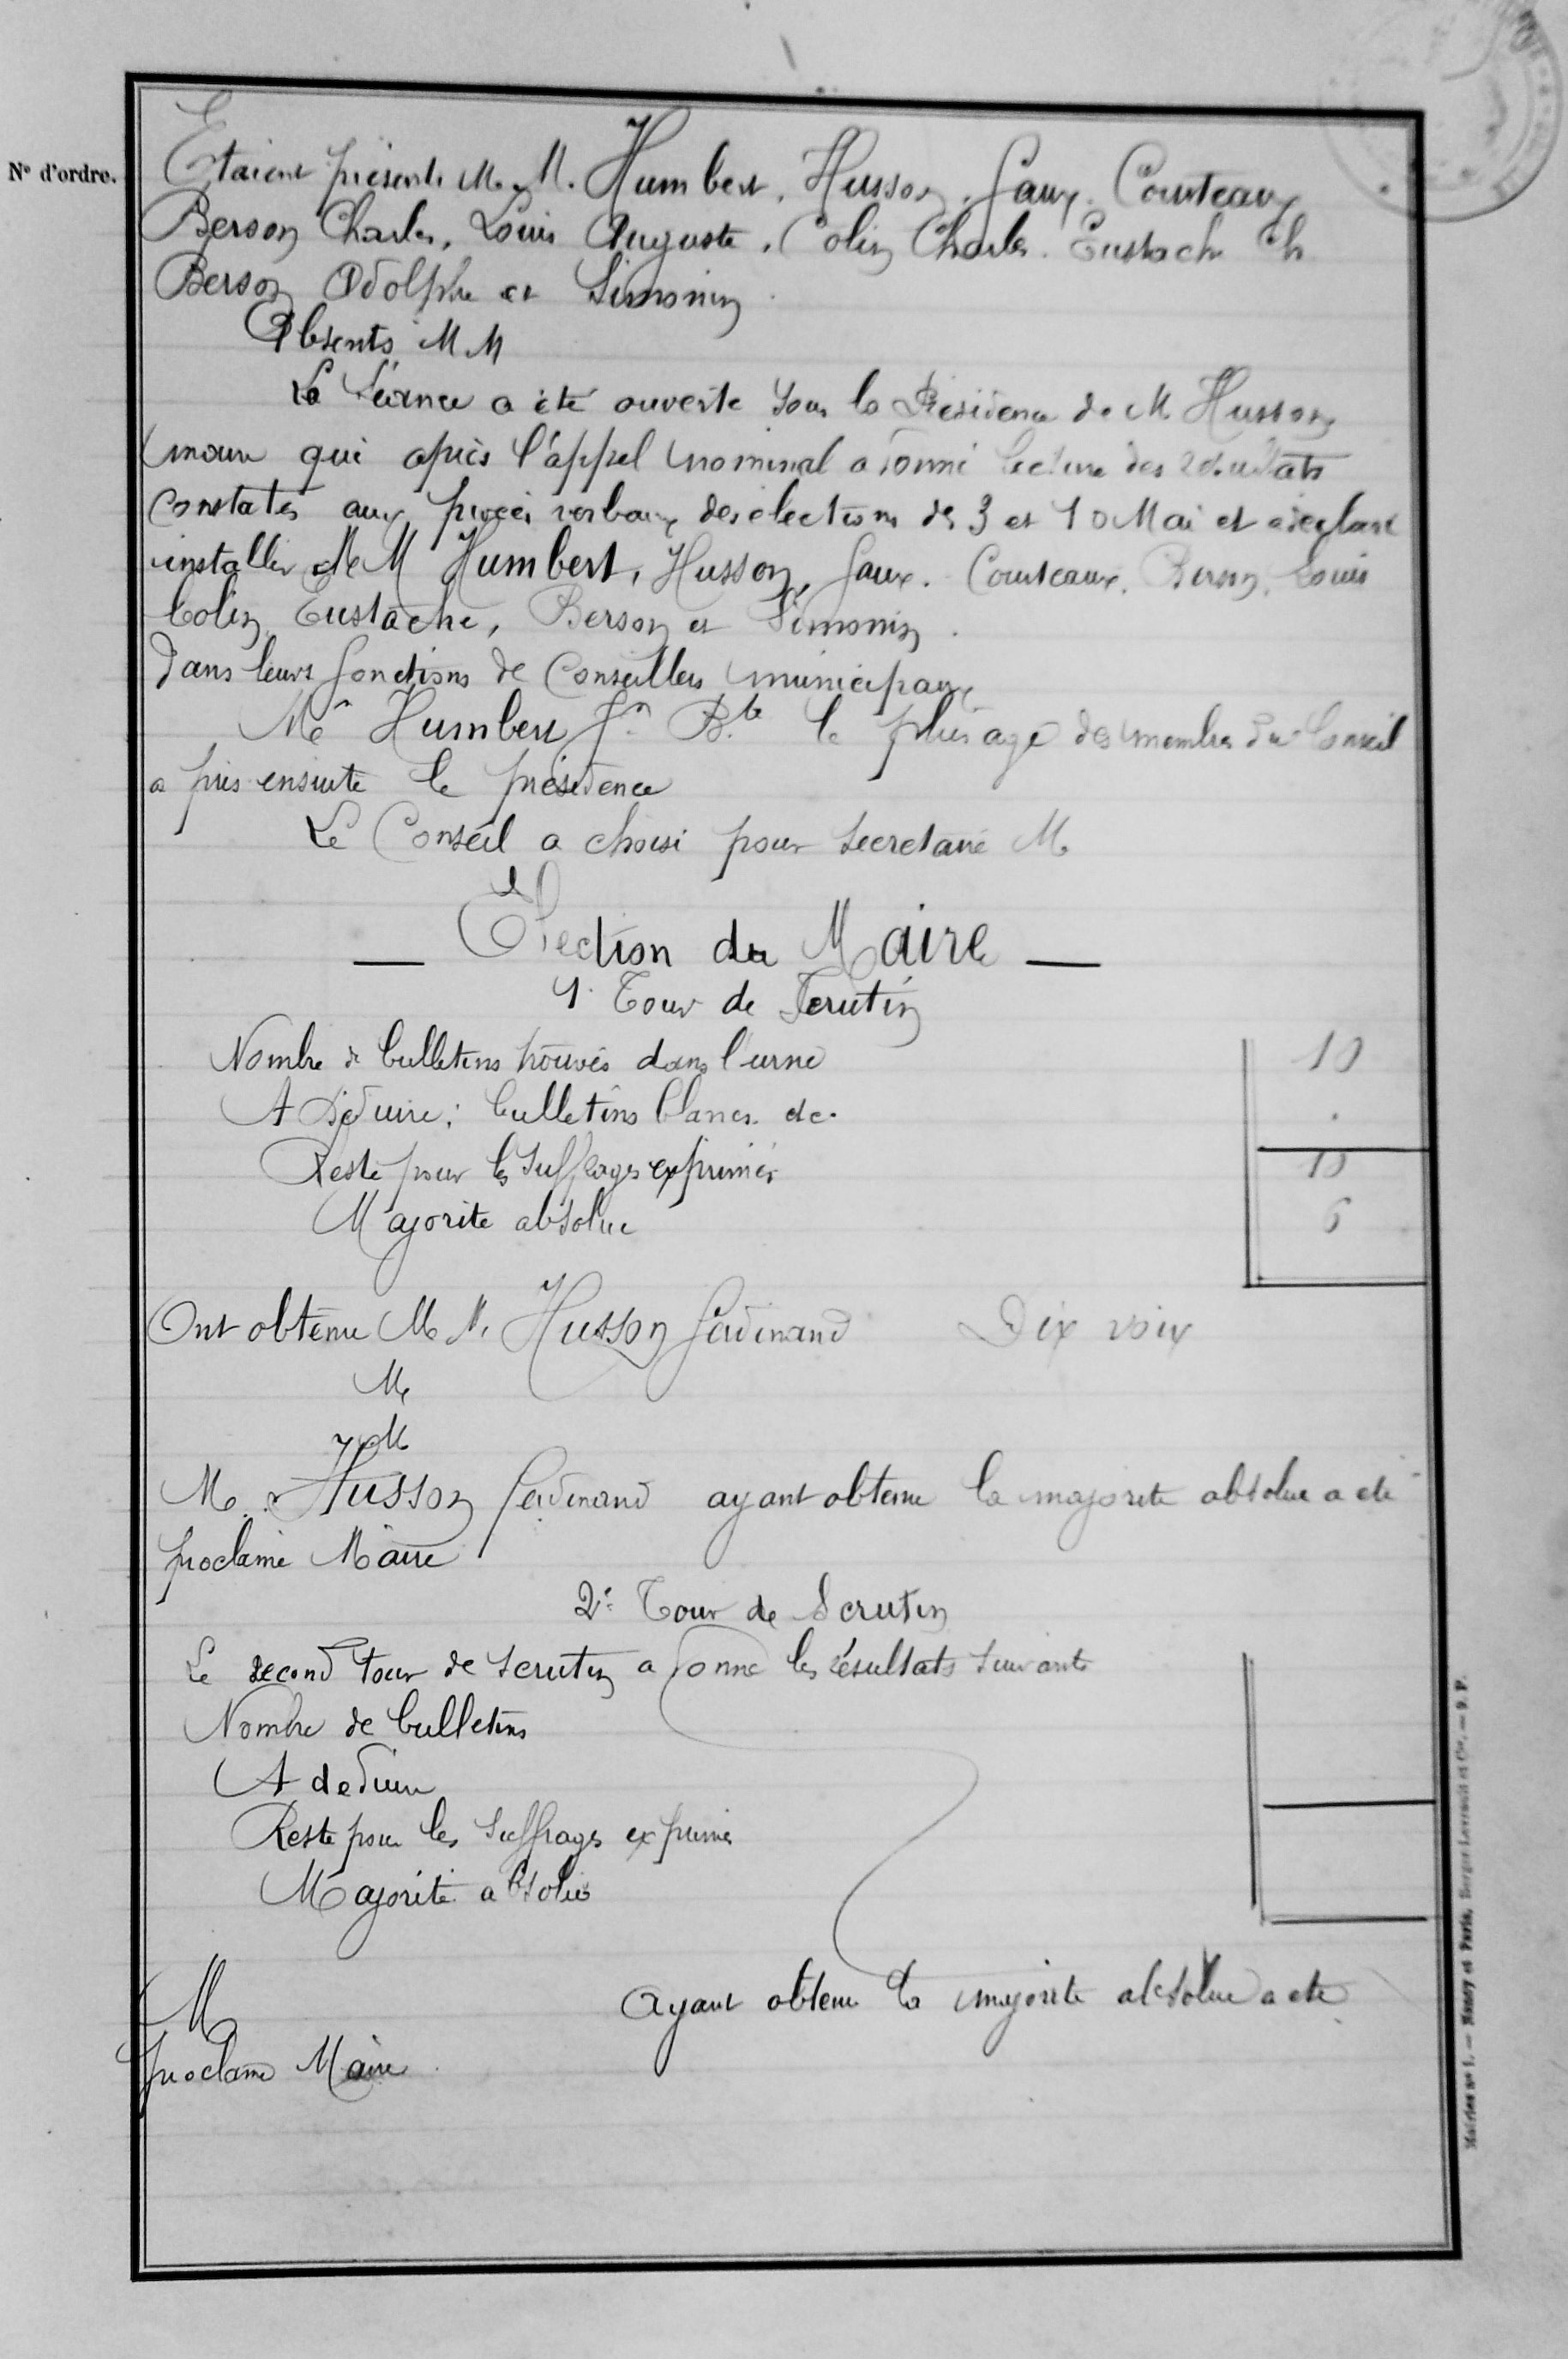 N° d'ordre.
Etaient présents M. M. Humbert, Husson, Gaux, Courteaux
Berson Charles, Louis Auguste, Colin Charles. Eustache Ch
Berson Adolphe et Simonin
Absents MM
La Séance a été ouverte sous la Présidence de M Husson
maire qui après l'appel nominal a donné lecture des résultats
constatés aux procès verbaux des élections des 3 et 10 Mai et a déclaré
installer MM Humbert, Husson, Gaux. Courteaux. Berson, Louis
Colin Eustache, Berson et Simonin.
dans leurs fonctions de Conseillers municipaux
Mr Humbert Jn Bte le plus age des membres du Conseil
a pris ensuite la présidence
Le Conseil a choisi pour secretaire M
— Election du Maire —
1. Tour de Scrutin
Nombre de bulletins trouvés dans l'urne 10
A Déduire: bulletins blancs. etc. .
Reste pour les suffrages exprimés 10
Majorite absolue 6
Ont obtenu M M. Husson Ferdinand Dix voix
M
M
M. Husson Ferdinand ayant obtenu la majorite absolue a été
proclamé Maire
2e Tour de Scrutin
Le second tour de scrutin a donné les résultats suivants
Nombre de bulletins
A deduire
Reste pour les suffrages exprimés
Majorité absolue
M ayant obtenu la majorite absolue a ete
proclamé Maire
Mairies n° 1. — Nancy et Paris, Berger-Levrault et Cie. — 9. P.